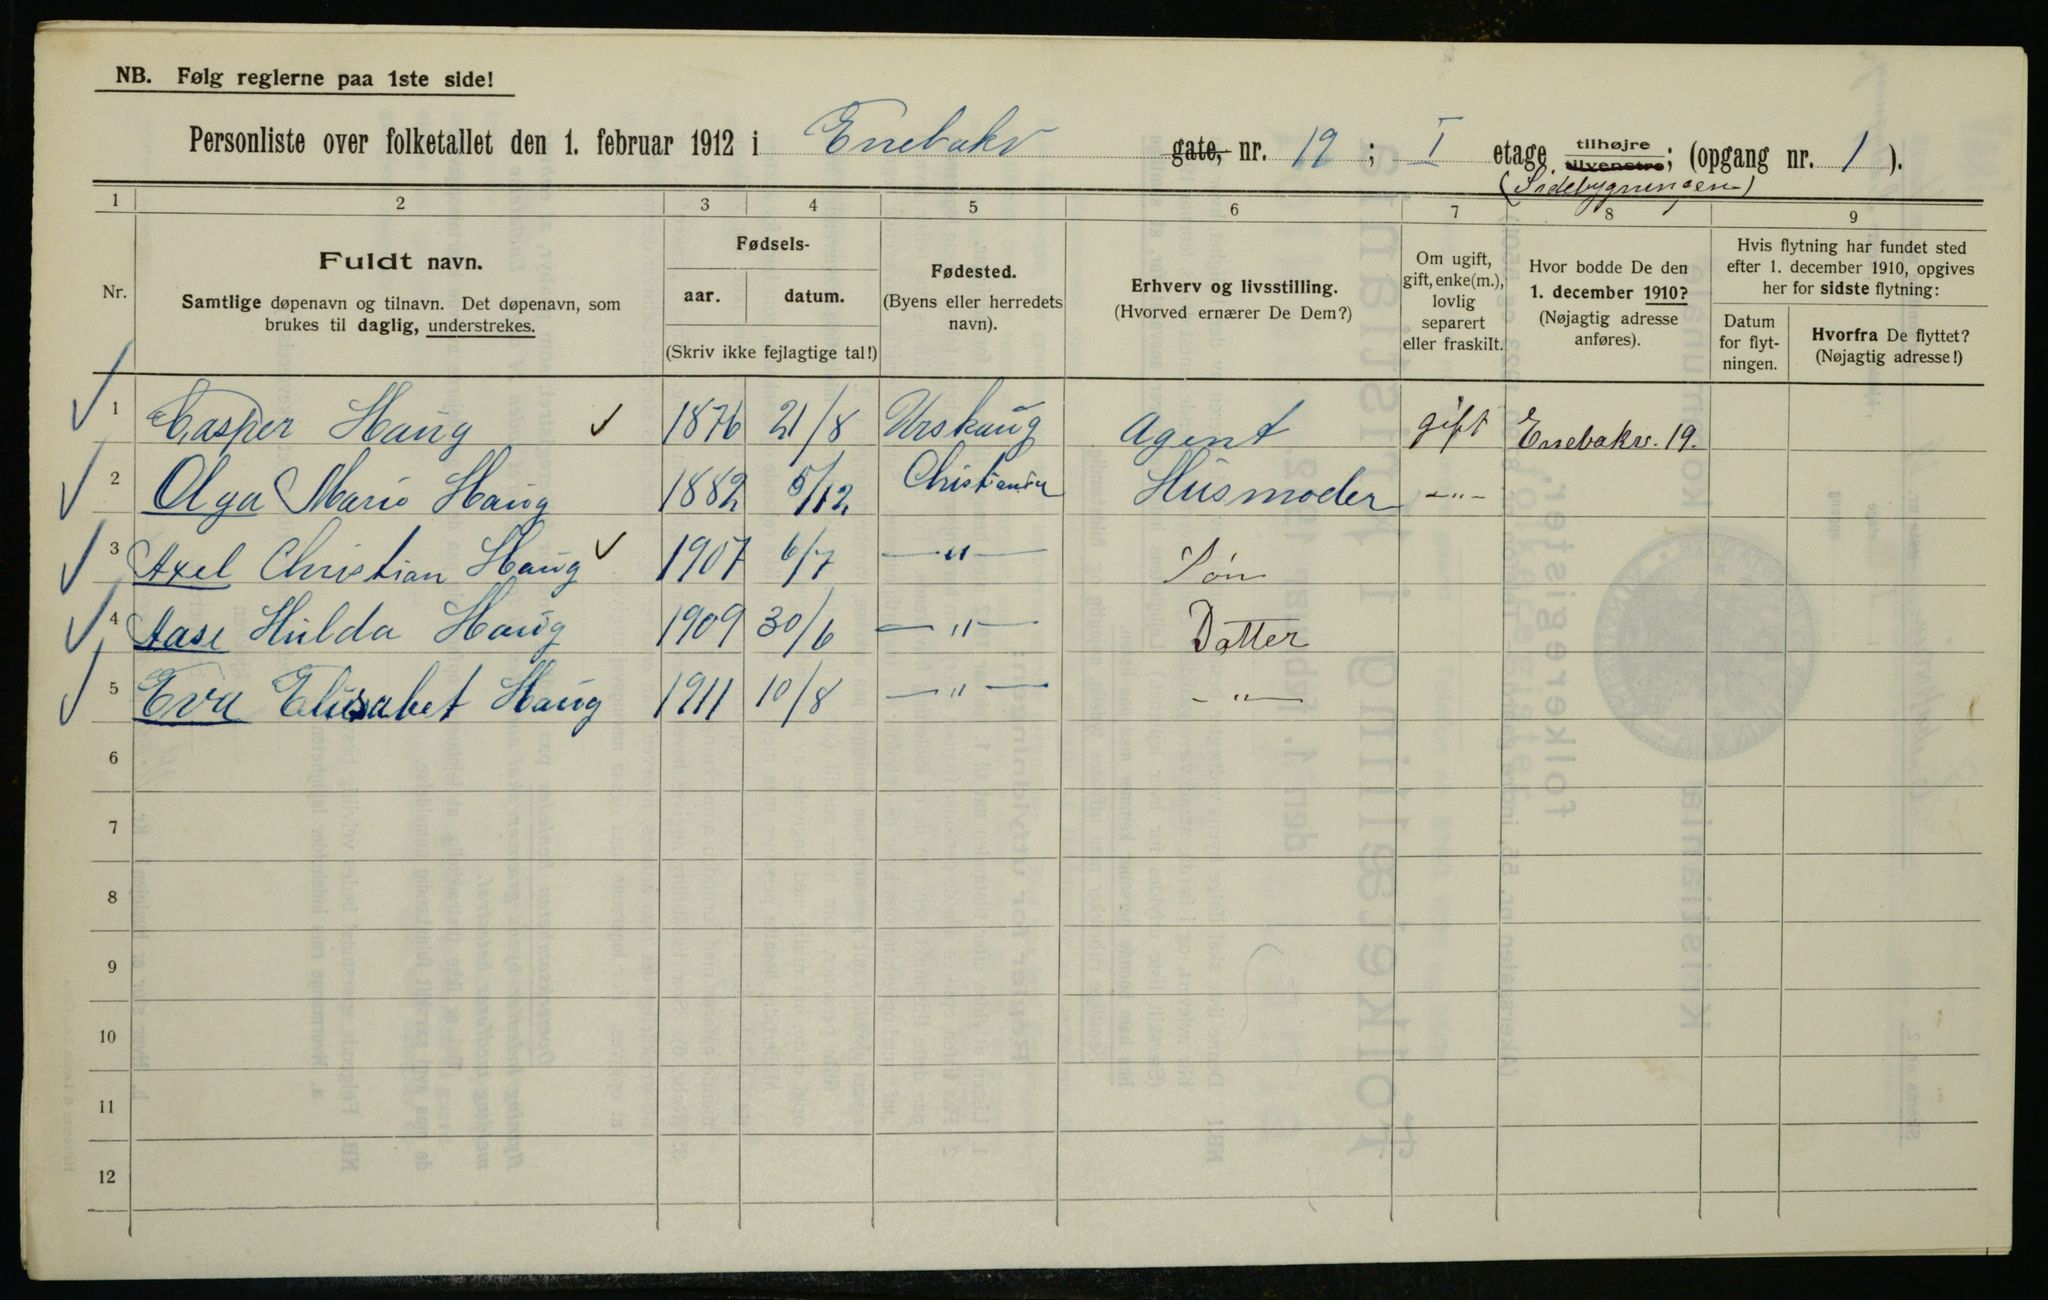 NB. Følg reglerne paa 1ste side!
Personliste over folketallet den 1. februar 1912 i Enebakv gate, nr. 19 ; I etage tilhøjre tilvenstre; (opgang nr. 1 ).
(Sidebygningen)
1 2 3 4 5 6 7 8 9
Nr.
Fuldt navn.
Samtlige døpenavn og tilnavn. Det døpenavn, som
brukes til daglig, understrekes.
Fødsels-
aar. datum.
(Skriv ikke fejlagtige tal!)
Fødested.
(Byens eller herredets
navn).
Erhverv og livsstilling.
(Hvorved ernærer De Dem?)
Om ugift,
gift, enke(m.),
lovlig
separert
eller fraskilt.
Hvor bodde De den
1. december 1910?
(Nøjagtig adresse
anføres).
Hvis flytning har fundet sted
efter 1. december 1910, opgives
her for sidste flytning:
Datum
for flyt-
ningen.
Hvorfra De flyttet?
(Nøjagtig adresse!)
1 Casper Haug 1876 21/8 Urskaug Agent gift Enebakv. 19.
2 Olga Marie Haug 1882 5/12 Christiania Husmoder —"—
3 Axel Christian Haug 1907 6/7 —"— Søn
4 Aase Hulda Haug 1909 30/6 —"— Datter
5 Eva Elisabet Haug 1911 10/8 —"— —"—
6
7
8
9
10
11
12